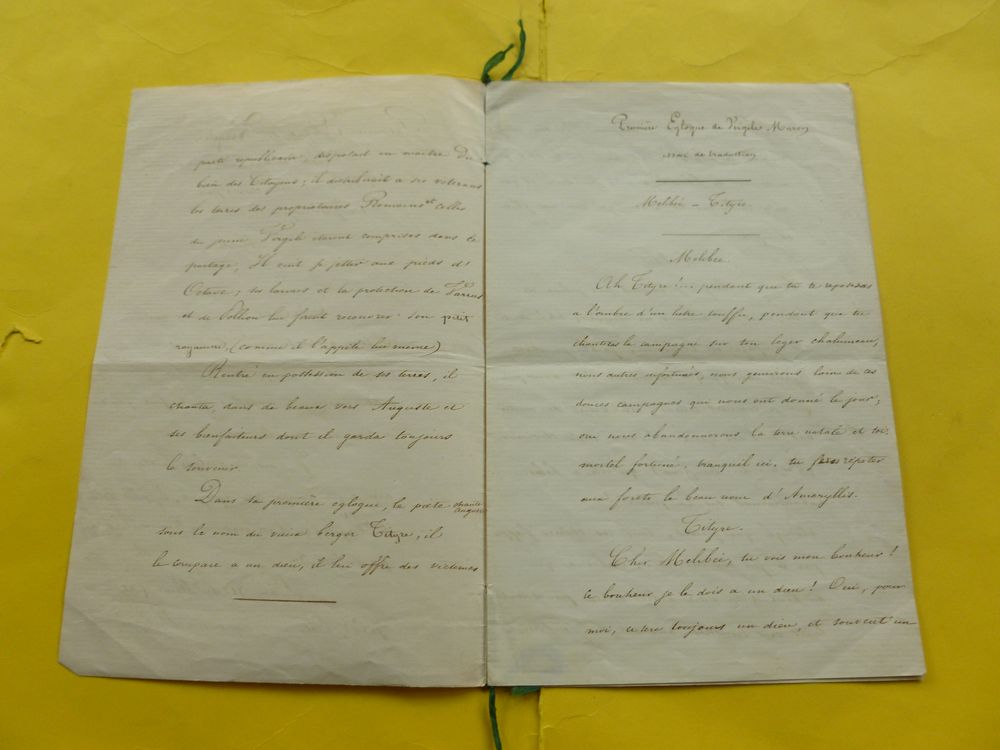 parti républicain, disposait en maître du
bien des Citoyens; il distribuait a ses vétérans
les terres des propriétaires Romains et celles
du jeune Vergile étaient comprises dans le
partage. Il vint se jetter aux pieds de
Octave; ses larmes et la protection de Varrus
et de Pollion lui firent recouvrer son petit
royaume, (comme il l'appèle lui même)
Rentré en possession de ses terres, il
chanta, dans de beaux vers Auguste et
ses bienfaiteurs dont il garda toujours
le souvenir.
Dans sa première eglogue, le poëte chante Auguste
sous le nom du vieux berger Tityre, il
le compare a un dieu, il lui offre des victimes
Première Eglogue de Vergile Maron
essai de traduction
Melibée - Tityre
Melibée.
Ah Tityre! pendant que tu te reposes
a l'ombre d'un hètre touffu, pendant que tu
chantes la campagne sur ton leger chalumeau,
nous autres infortunés, nous gemirons loin de ces
douces campagnes qui nous ont donné le jour;
oui nous abandonnerons la terre natale et toi,
mortel fortuné, tranquil ici, tu feras répéter
aux forets le beau nom d'Amaryllis.
Tityre.
Cher Melibée, tu vois mon bonheur!
ce bonheur je le dois a un dieu! Oui, pour
moi, ce sera toujours un dieu, et souvent un